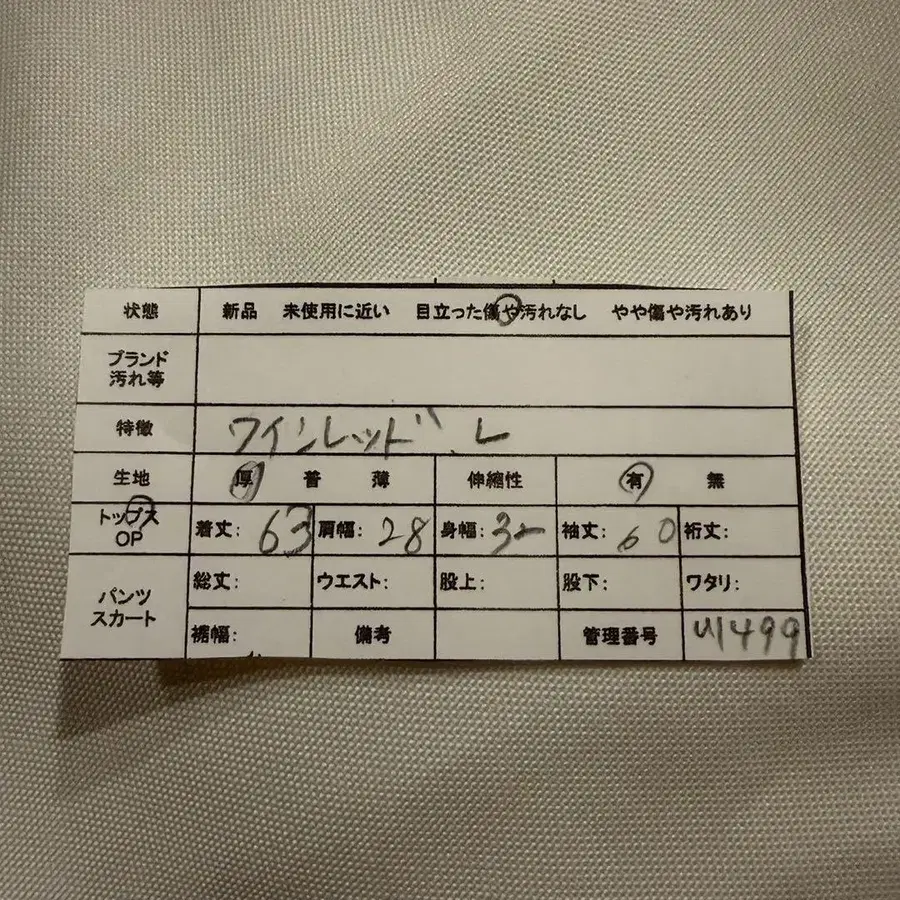 状態 新品 未使用に近い 目立った傷や汚れなし やや傷や汚れあり
ブランド
汚れ等
特徴 ワインレッド L
生地 厚 普 薄 伸縮性 有 無
トップス
OP
着丈: 63 肩幅: 28 身幅: 32 袖丈: 60 裄丈:
パンツ
スカート
総丈: ウエスト: 股上: 股下: ワタリ:
裾幅: 備考 管理番号 U1499